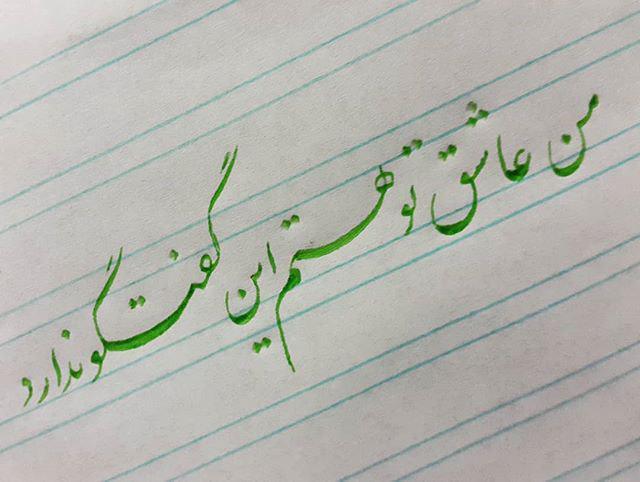 من عاشق تو هستم این گفت گو ندارد